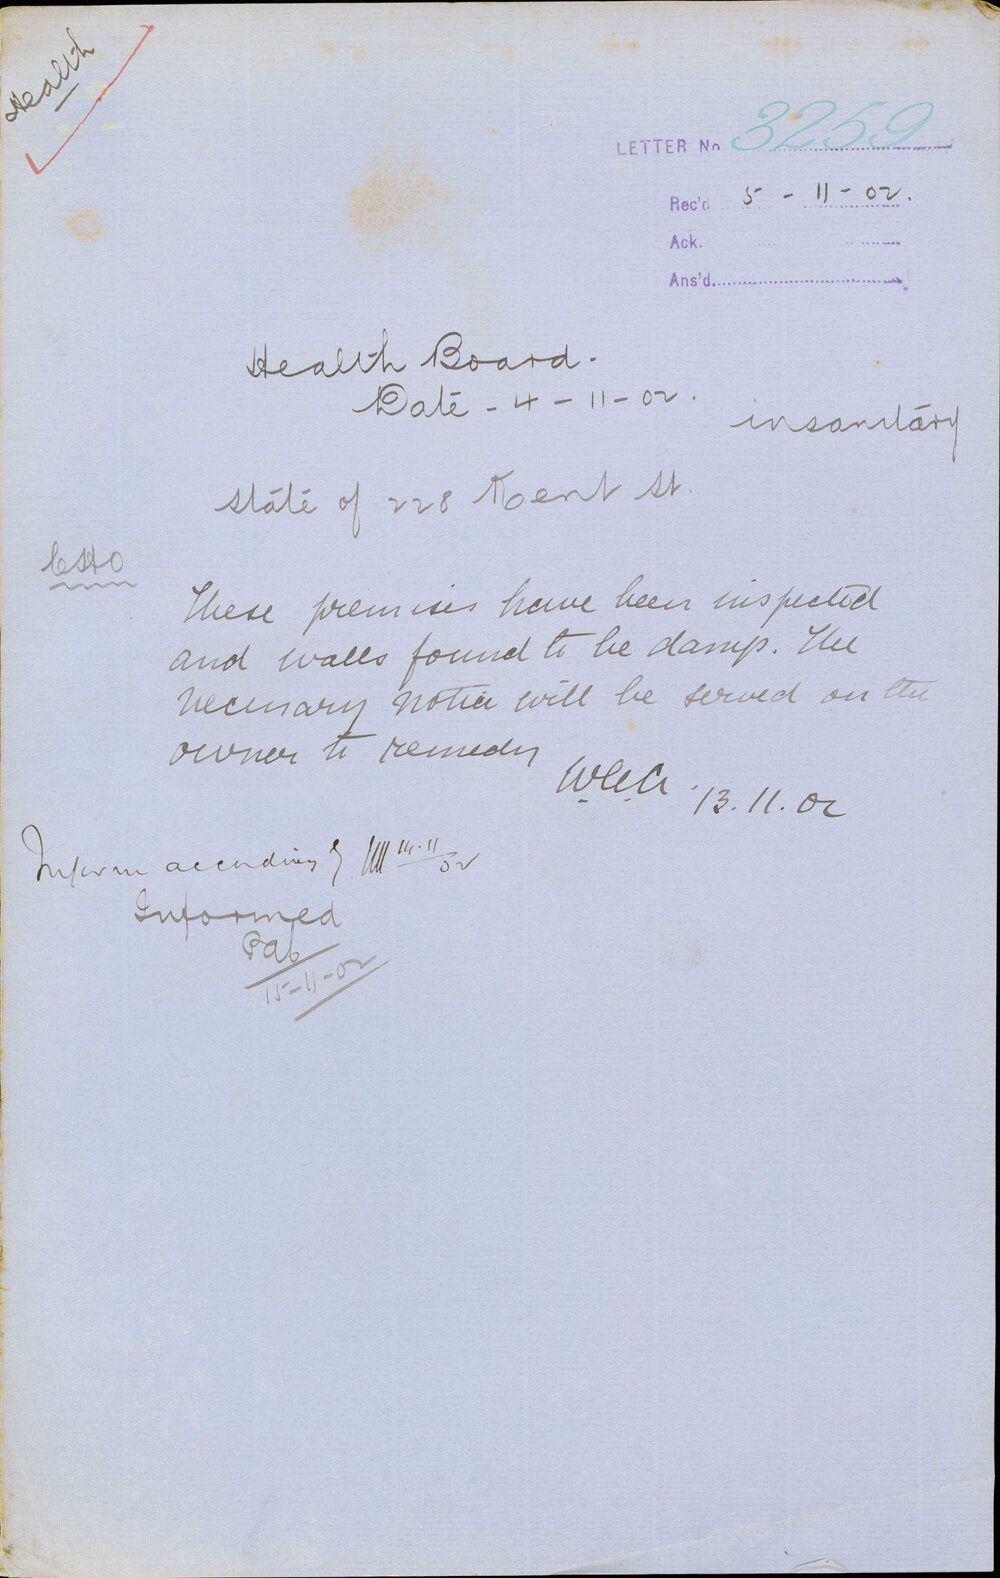 Health
LETTER No 3259
Rec'd 5 - 11 - 02.
Ack.
Ans'd.
Health Board.
Date - 4 - 11 - 02.
insanitary
state of 228 Kent St.
CHO
These premises have been inspected
and walls found to be damp. The
necessary notice will be served on the
owner to remedy
13.11.02
Inform accordingly 14.11/02
Informed
15-11-02